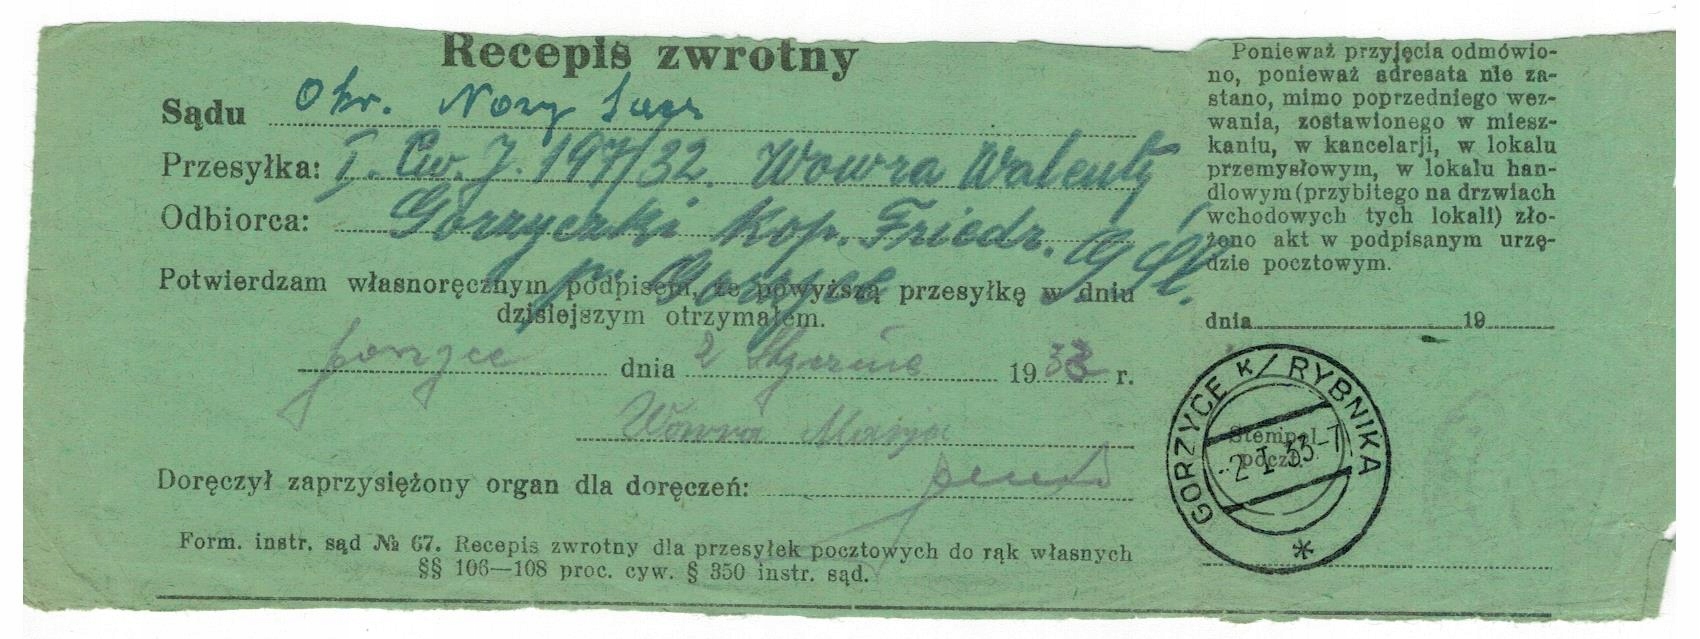 Recepis zwrotny
Sądu Okr. Nowy Sącz
Przesyłka: I. Cw. J. 197/32. Wowra Walenty
Odbiorca: Gorzyczki Kop. Friedr. G Śl.
p. Gorzyce
Potwierdzam własnoręcznym podpisem, że powyższą przesyłkę w dniu
dzisiejszym otrzymałem.
Gorzyce dnia 2 Stycznia 1933 r.
Wowra Marja
Doręczył zaprzysiężony organ dla doręczeń:
Form. instr. sąd № 67. Recepis zwrotny dla przesyłek pocztowych do rąk własnych
§§ 106—108 proc. cyw. § 350 instr. sąd.
Ponieważ przyjęcia odmówio-
no, ponieważ adresata nie za-
stano, mimo poprzedniego wez-
wania, zostawionego w miesz-
kaniu, w kancelarji, w lokalu
przemysłowym, w lokalu han-
dlowym (przybitego na drzwiach
wchodowych tych lokali) zło-
żono akt w podpisanym urzę-
dzie pocztowym.
dnia 19
GORZYCE K/RYBNIKA
Stempel
poczt.
2 I 33-7